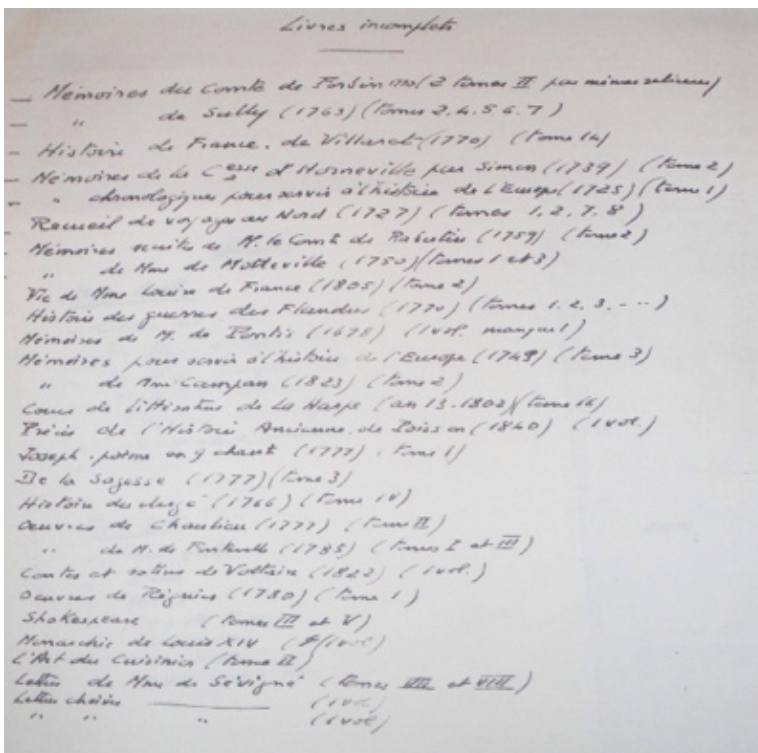 Livres incomplets
— Mémoires du Comte de Forbin (2 tomes II pas mêmes relieures)
— " de Sully (1763) (tomes 2.4.5.6.7)
— Histoire de France. de Villaret (1770) (tome 14)
— Mémoires de la Csse d'Horneville par Simon (1739) (tome 2)
— " chronologiques pour servir à l'histoire de l'Europe (1725) (tome 1)
— Recueil de voyages au Nord (1727) (tomes 1, 2, 7. 8)
Mémoires de M. le Comte de Rabutin (1759) (tome 2)
" de Mme de Motteville (1750) (tomes 1 et 3)
Vie de Mme Louise de France (1805) (tome 2)
Histoire des guerres des Flandres (1770) (tomes 1. 2. 3. - ..)
Mémoires de M. de Pontis (1678) (1 vol. manque 1)
Mémoires pour servir à l'histoire de l'Europe (1749) (tome 3)
" de Mme Campan (1823) (tome 2)
Cours de littérature de La Harpe (an 13-1802) (tome 16)
Précis de l'Histoire Ancienne. de Poisson (1840) (1 vol.)
Joseph. poème en 9 chants (1777) (tome 1)
De la Sagesse (1777) (tome 3)
Histoire du clergé (1766) (tome IV)
Œuvres de Chaulieu (1777) (tome II)
" de M. de Fontenelle (1785) (tomes I et III)
Contes et satires de Voltaire (1822) (1 vol.)
Oeuvres de Régnier (1780) (tome 1)
Shakespeare (tomes III et V)
Monarchie de Louis XIV (1 vol)
L'Art du Cuisinier (tome II)
Lettres de Mme de Sévigné (tomes et VIII)
Lettres choisies ——— (1 vol)
" " " (1 vol)